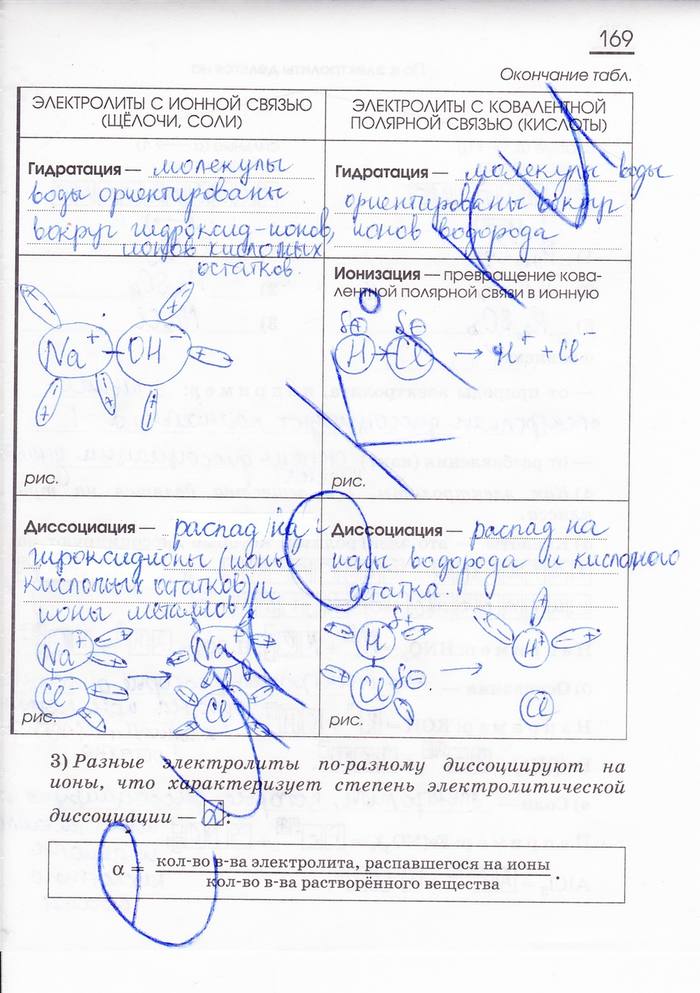 169
Окончание табл.
ЭЛЕКТРОЛИТЫ С ИОННОЙ СВЯЗЬЮ
(ЩЁЛОЧИ, СОЛИ)
ЭЛЕКТРОЛИТЫ С КОВАЛЕНТНОЙ
ПОЛЯРНОЙ СВЯЗЬЮ (КИСЛОТЫ)
Гидратация — молекулы
воды ориентированы
вокруг гидроксид-ионов,
ионов кислотных
остатков.
Гидратация — молекулы воды
ориентированы вокруг
ионов водорода
Na+ OH-
рис.
Ионизация — превращение кова-
лентной полярной связи в ионную
δ+ δ-
H → Cl → H+ + Cl-
рис.
Диссоциация — распад на
гироксидионы (ионы
кислотных остатков) и
ионы металлов
Na+ → Na+
Cl- Cl-
рис.
Диссоциация — распад на
ионы водорода и кислотного
остатка.
H δ+ → H+
Cl δ- Cl
рис.
3) Разные электролиты по-разному диссоциируют на
ионы, что характеризует степень электролитической
диссоциации — α:
α = кол-во в-ва электролита, распавшегося на ионы
кол-во в-ва растворённого вещества .